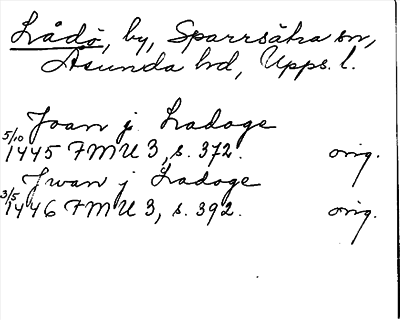 Lådö, by, Sparrsätra sn,
Åsunda hd, Upps. l.
Joan j Ladoge
5/10 1445 FMU 3, s. 372. orig.
Jwan j Ladoge
3/5 1446 FMU 3, s. 392. orig.